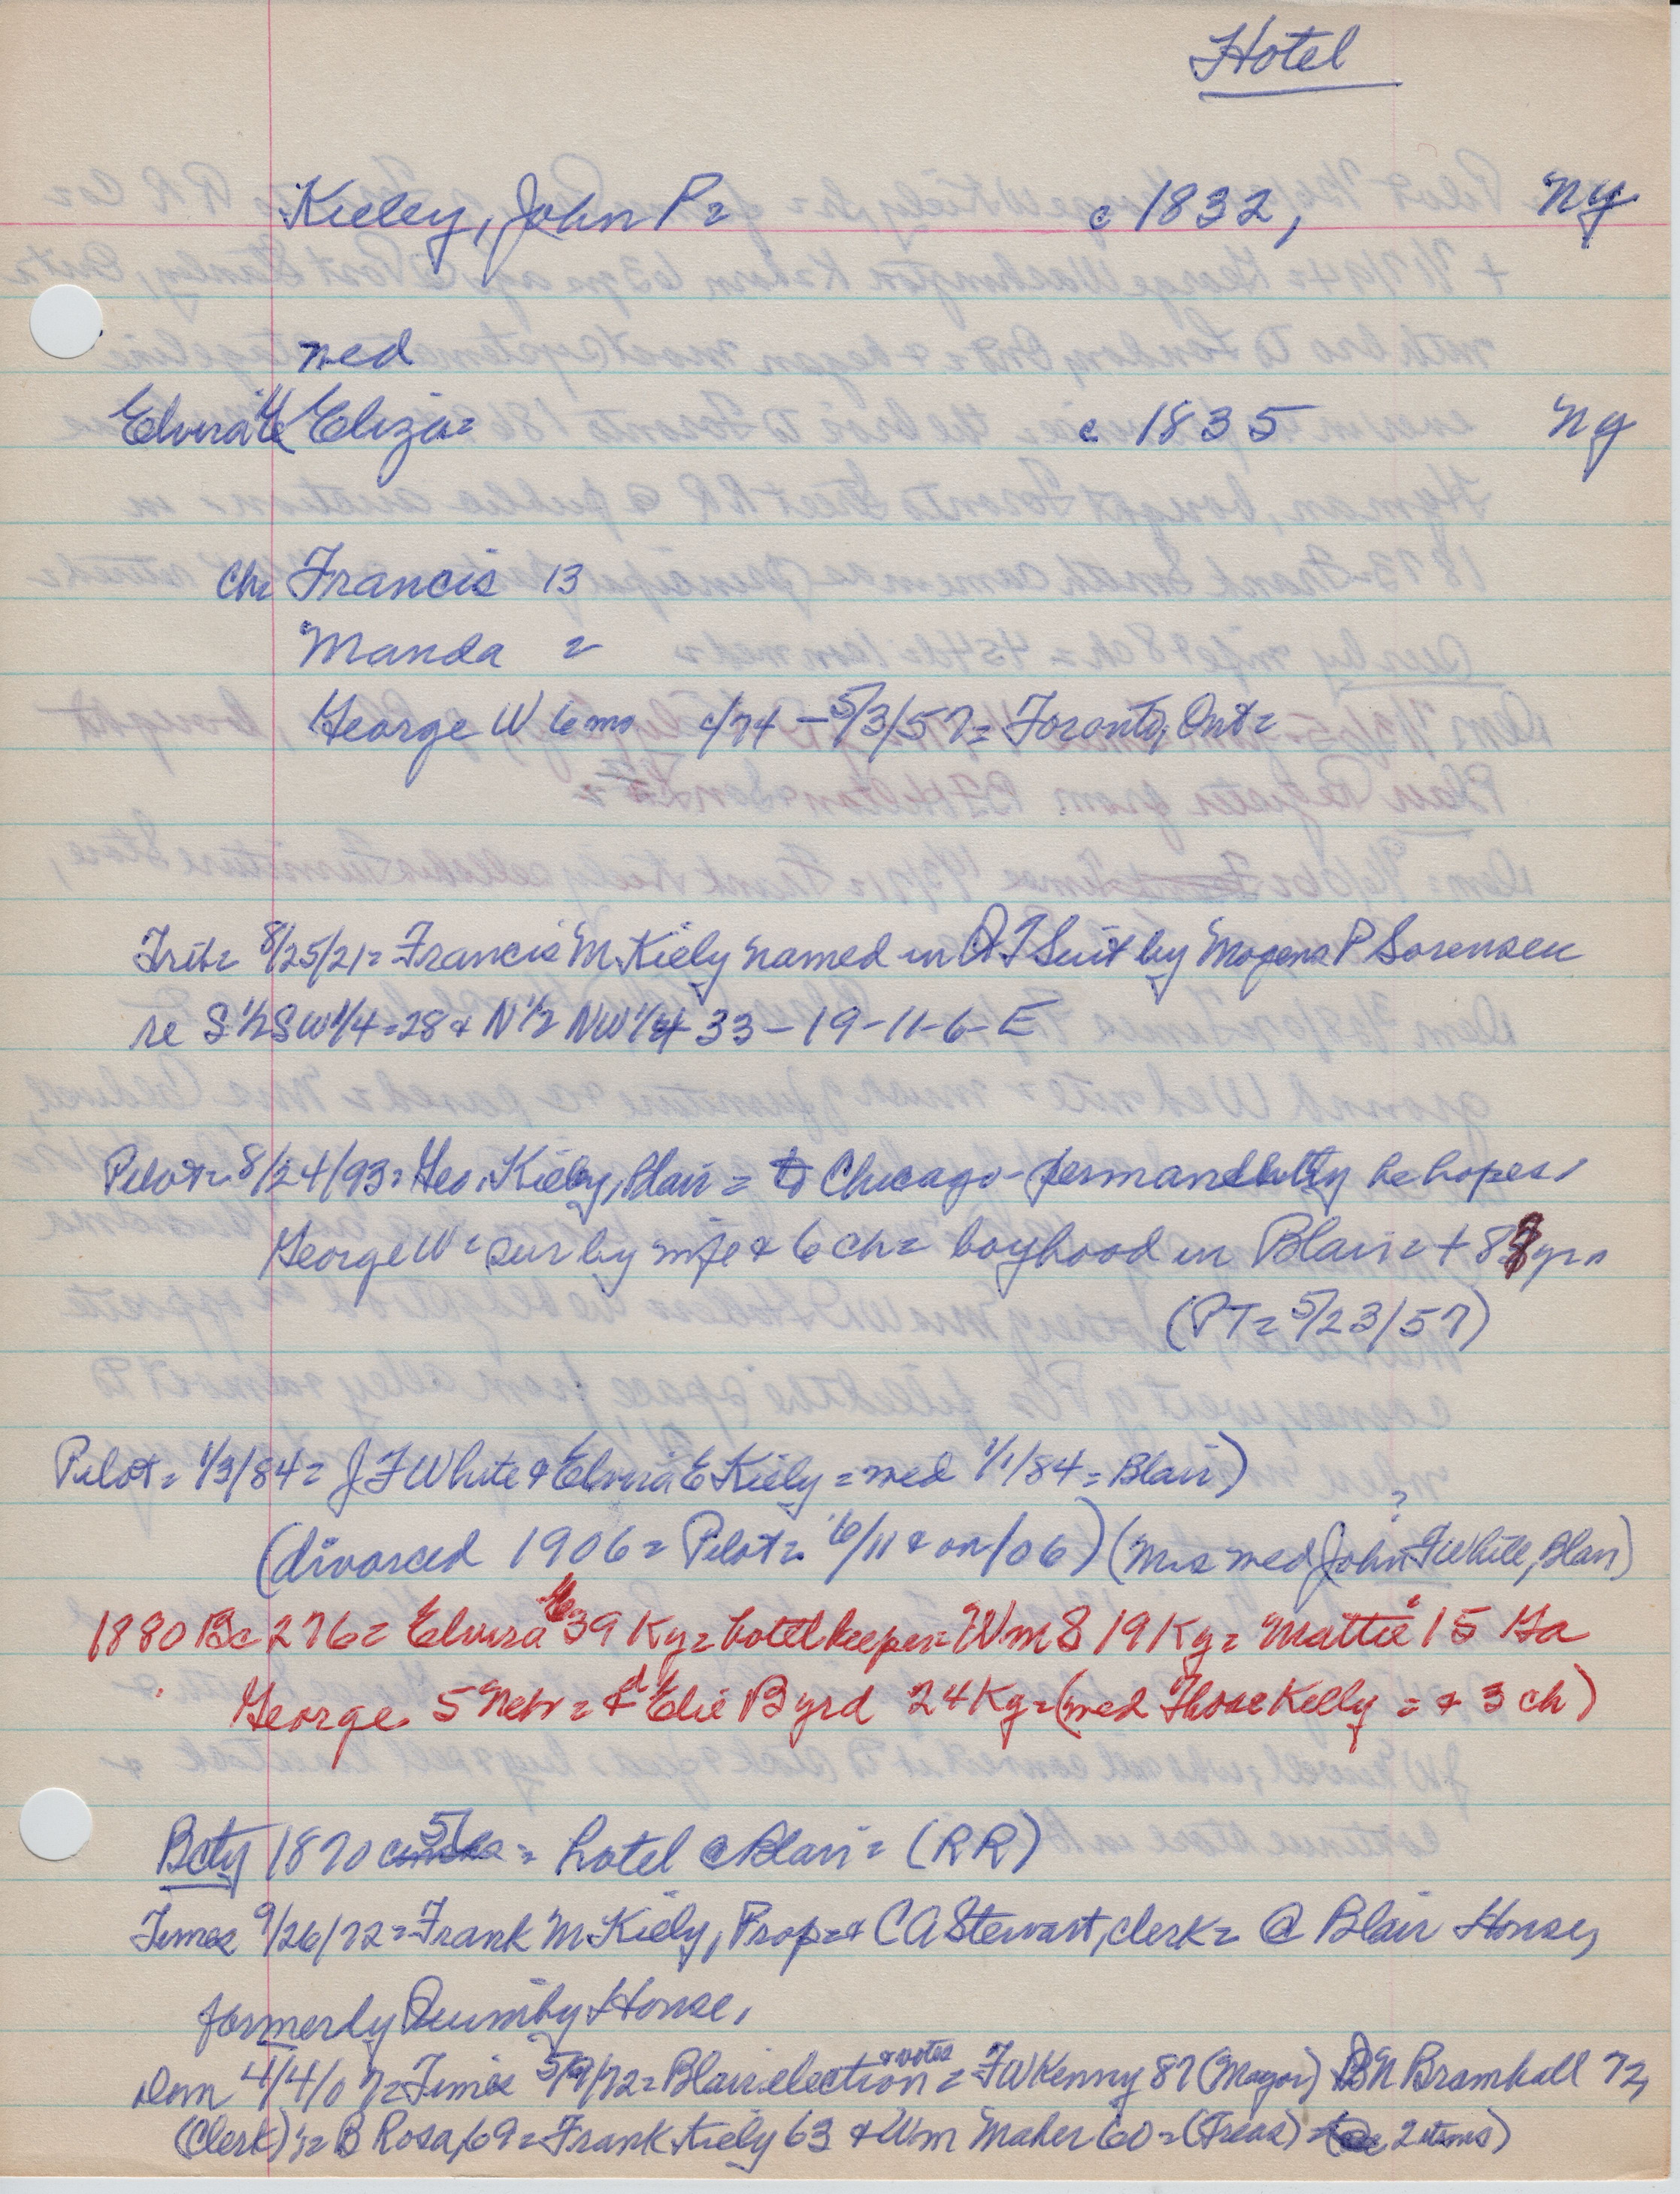 Hotel
Kieley, John P= c 1832, Ny
med
Elvira E Eliza= c 1835 Ny
Ch= Francis 13
Manda =
George W 6 mo c/74 – 5/3/57= Toronto, Ont=
Trib= 8/25/21= Francis M. Kiely named in QT Suit by Mogens P Sorensen
re S 1/2 SW 1/4 = 28 & N 1/2 NW 1/4 33 – 19 – 11 – 6 – E
Pilot= 8/24/93= Geo. Kieley, Blair = to Chicago – permanently he hopes,
George W= sur by wife & 6 ch= boyhood in Blair= + 83 yrs
(PT= 5/23/57)
Pilot= 1/3/84= J F White & Elvira E Kiely = med 1/1/84 = Blair)
(divorced 1906= Pilot= 6/11 & on/06) (Mrs med John ? F White, Blair)
1880 Bc 276= Elvira E 39 Ky= hotel keeper= Wm S 19 Ky= Mattie 15 Ga
George 5 Neb= & d Elie Byrd 24 Ky= (med Thos Kelly = & 3 ch)
Bcty 1870 = hotel @ Blair= (RR)
Times 9/26/72= Frank M. Kiely, Prop= & C A Stewart, clerk= @ Blair House,
formerly Quimby House,
Dem 4/4/07= Times 5/9/72= Blair election & votes = F W Kenny 87 (Mayor) B N Bramhall 72,
(Clerk)= B Rosa, 69= Frank Kiely 63 & Wm Maher 60= (Treas) = 2 items)